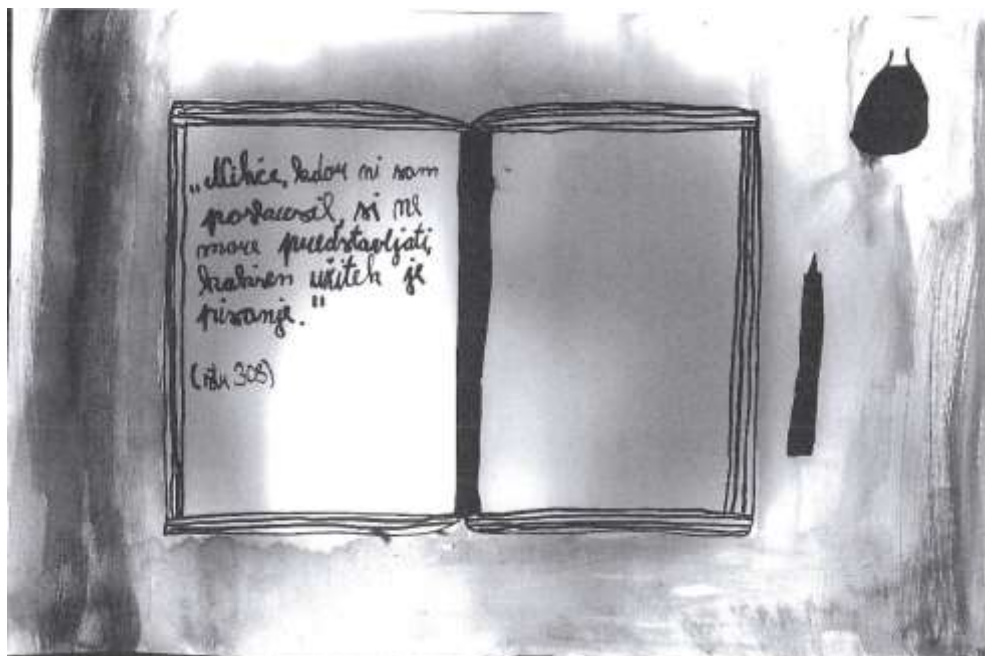 „Nihče, kdor ni sam
poskusil, si ne
more predstavljati,
kakšen užitek je
pisanje."
(str 308)